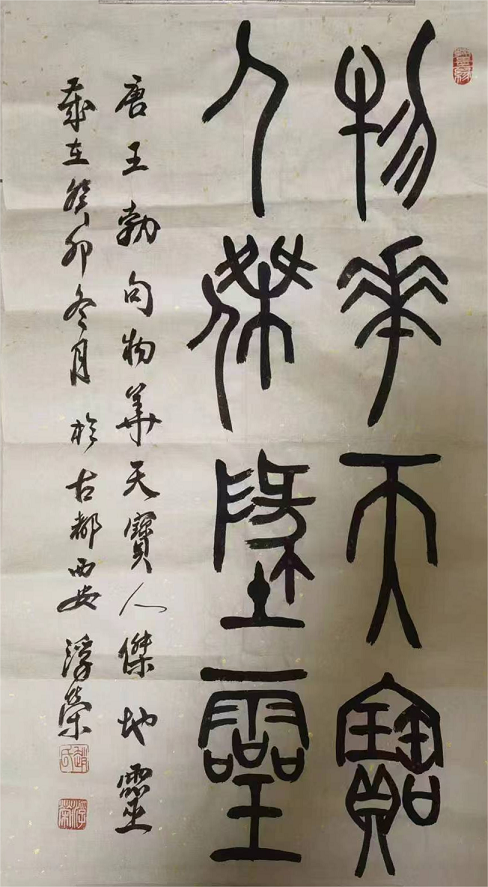 物華天寶
人傑地靈
唐王勃句物華天寶人傑地靈
歲在癸卯冬月於古都西安 浮榮